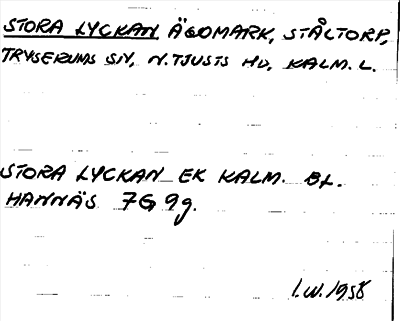 STORA LYCKAN ÄGOMARK, STÅLTORP,
TRYSERUMS SN, N.TJUSTS HD, KALM. L.
STORA LYCKAN EK KALM. BL.
HANNÄS 7G 9g.
I.W. 1958